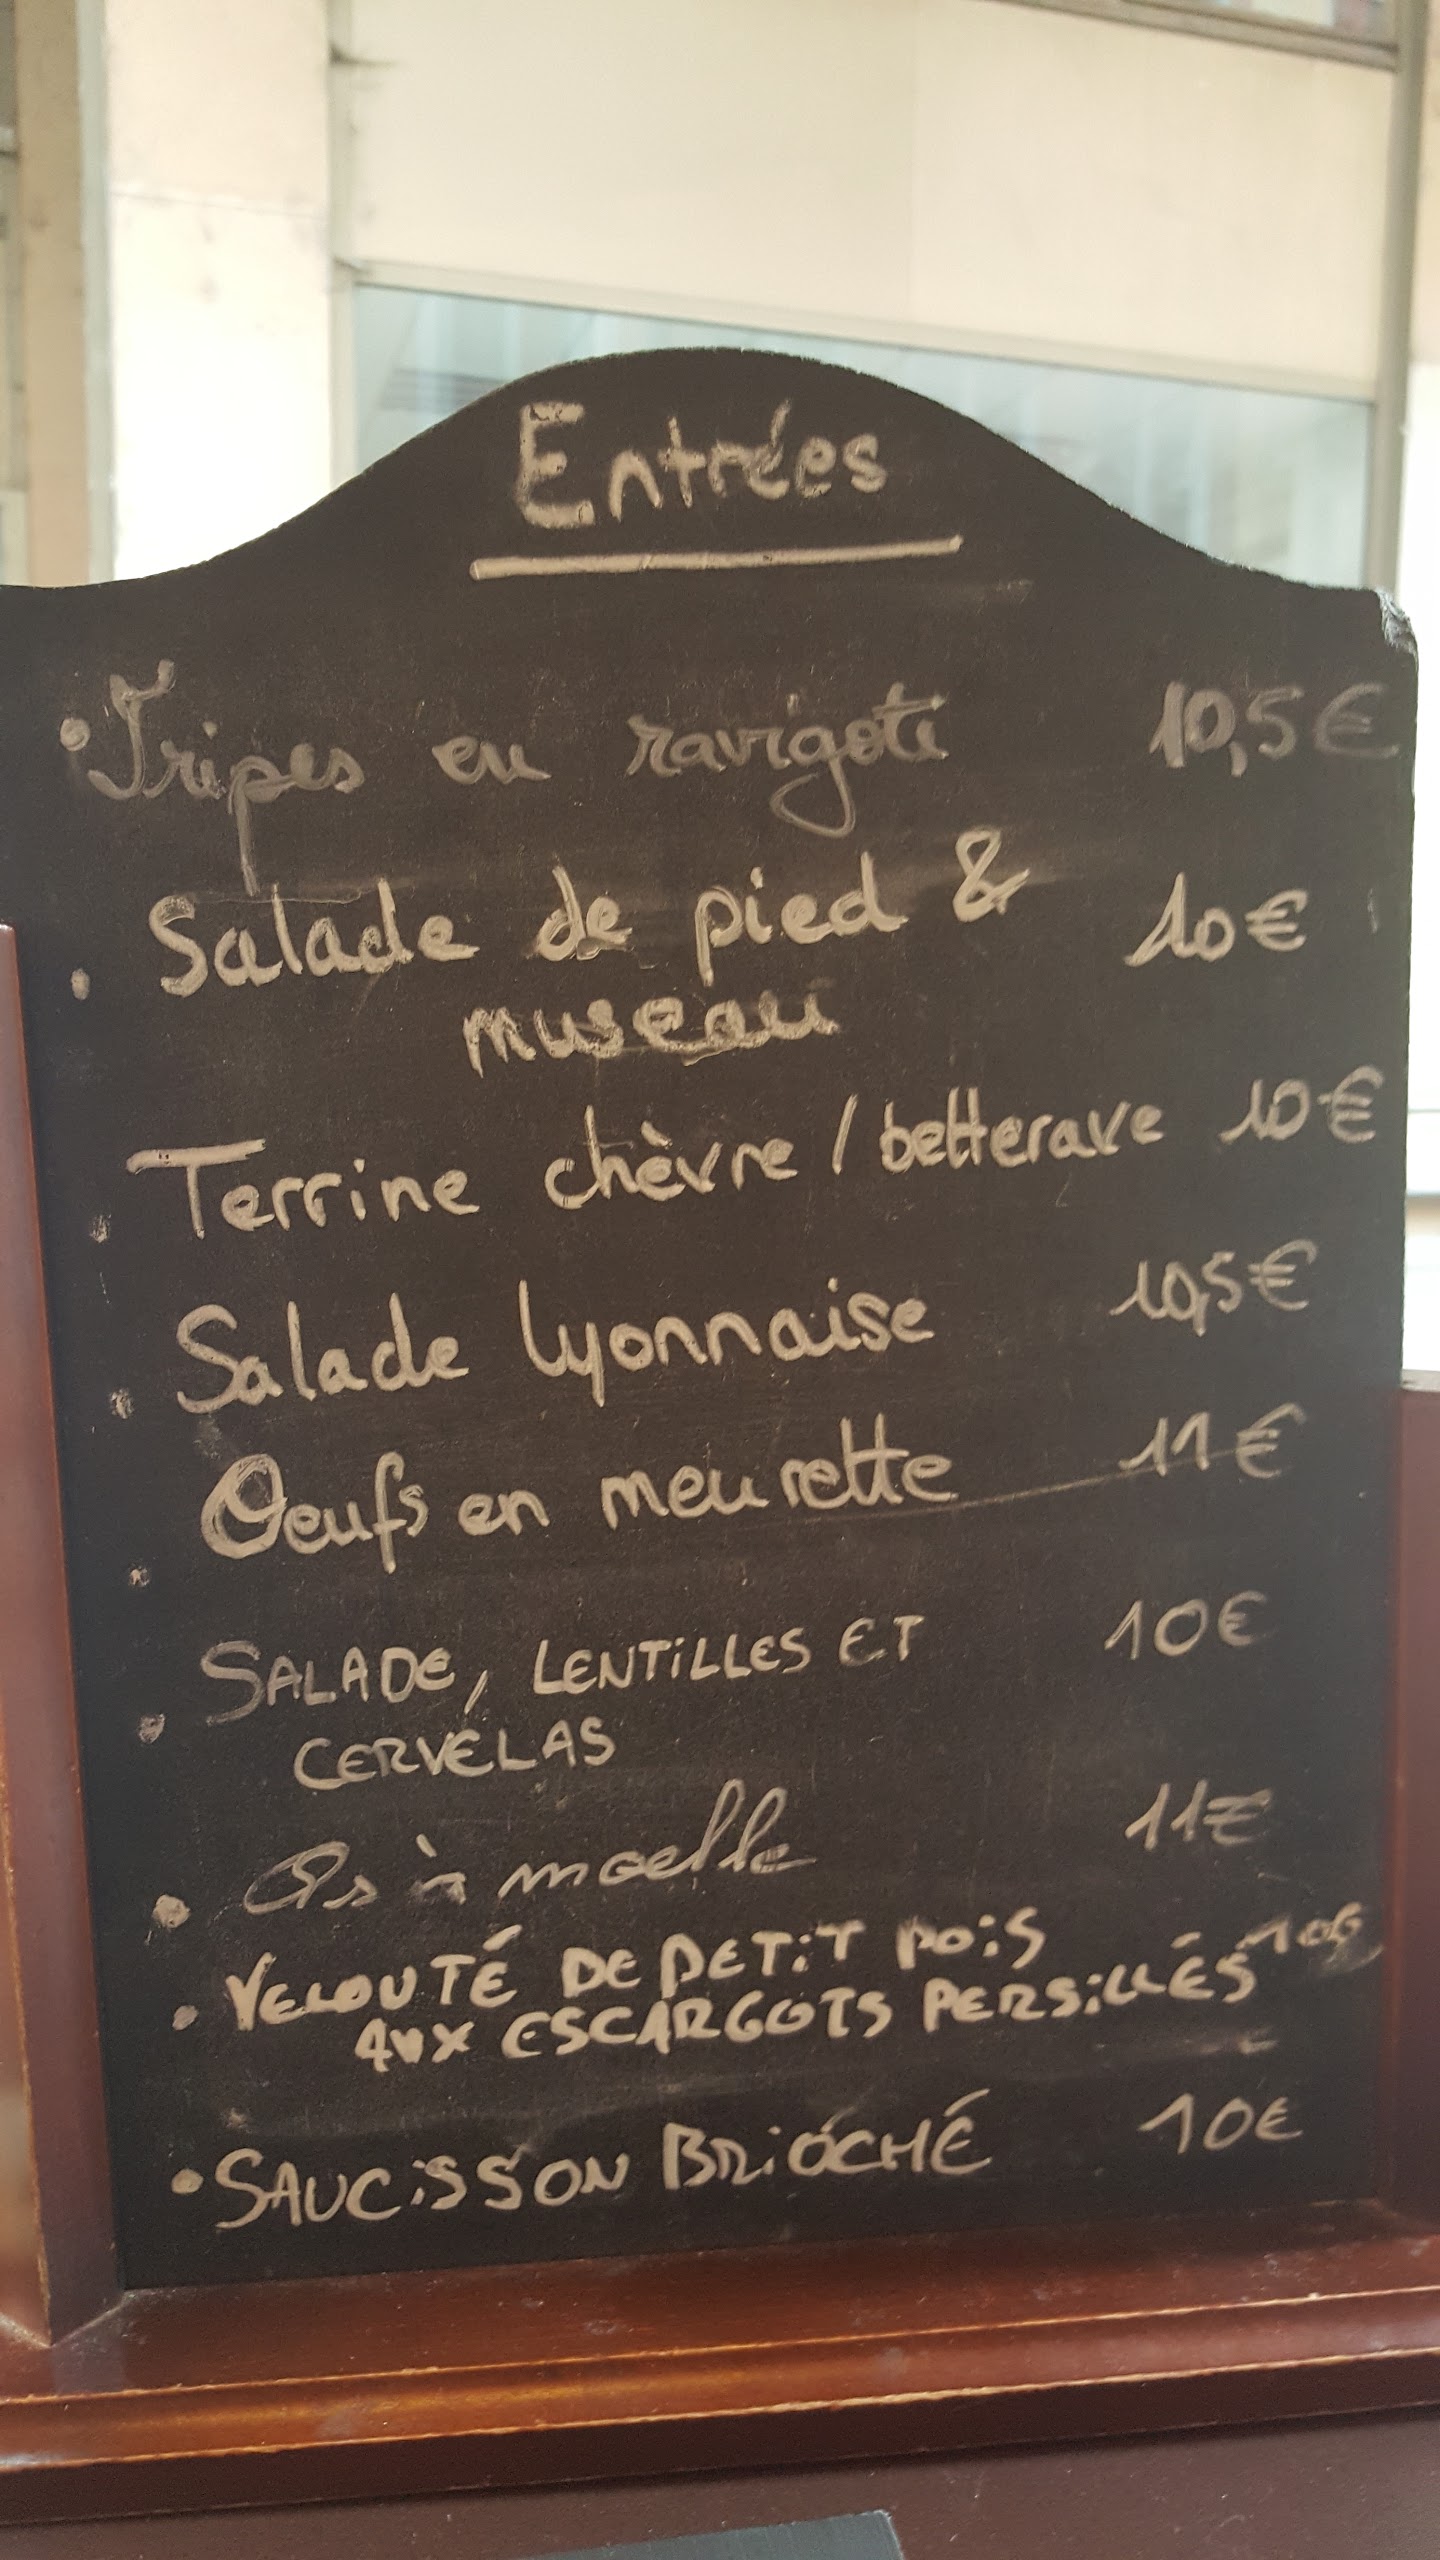 Entrées
• Tripes en ravigote 10,5€
• Salade de pied & 10€
museau
• Terrine chèvre / betterave 10€
• Salade lyonnaise 10,5€
• Oeufs en meurette 11€
• SALADE, LENTILLES ET 10€
CERVELAS
• Os à moelle 11€
• VELOUTÉ DE PETIT POIS
AUX ESCARGOTS PERSILLÉS 10€
• SAUCISSON BRIOCHÉ 10€